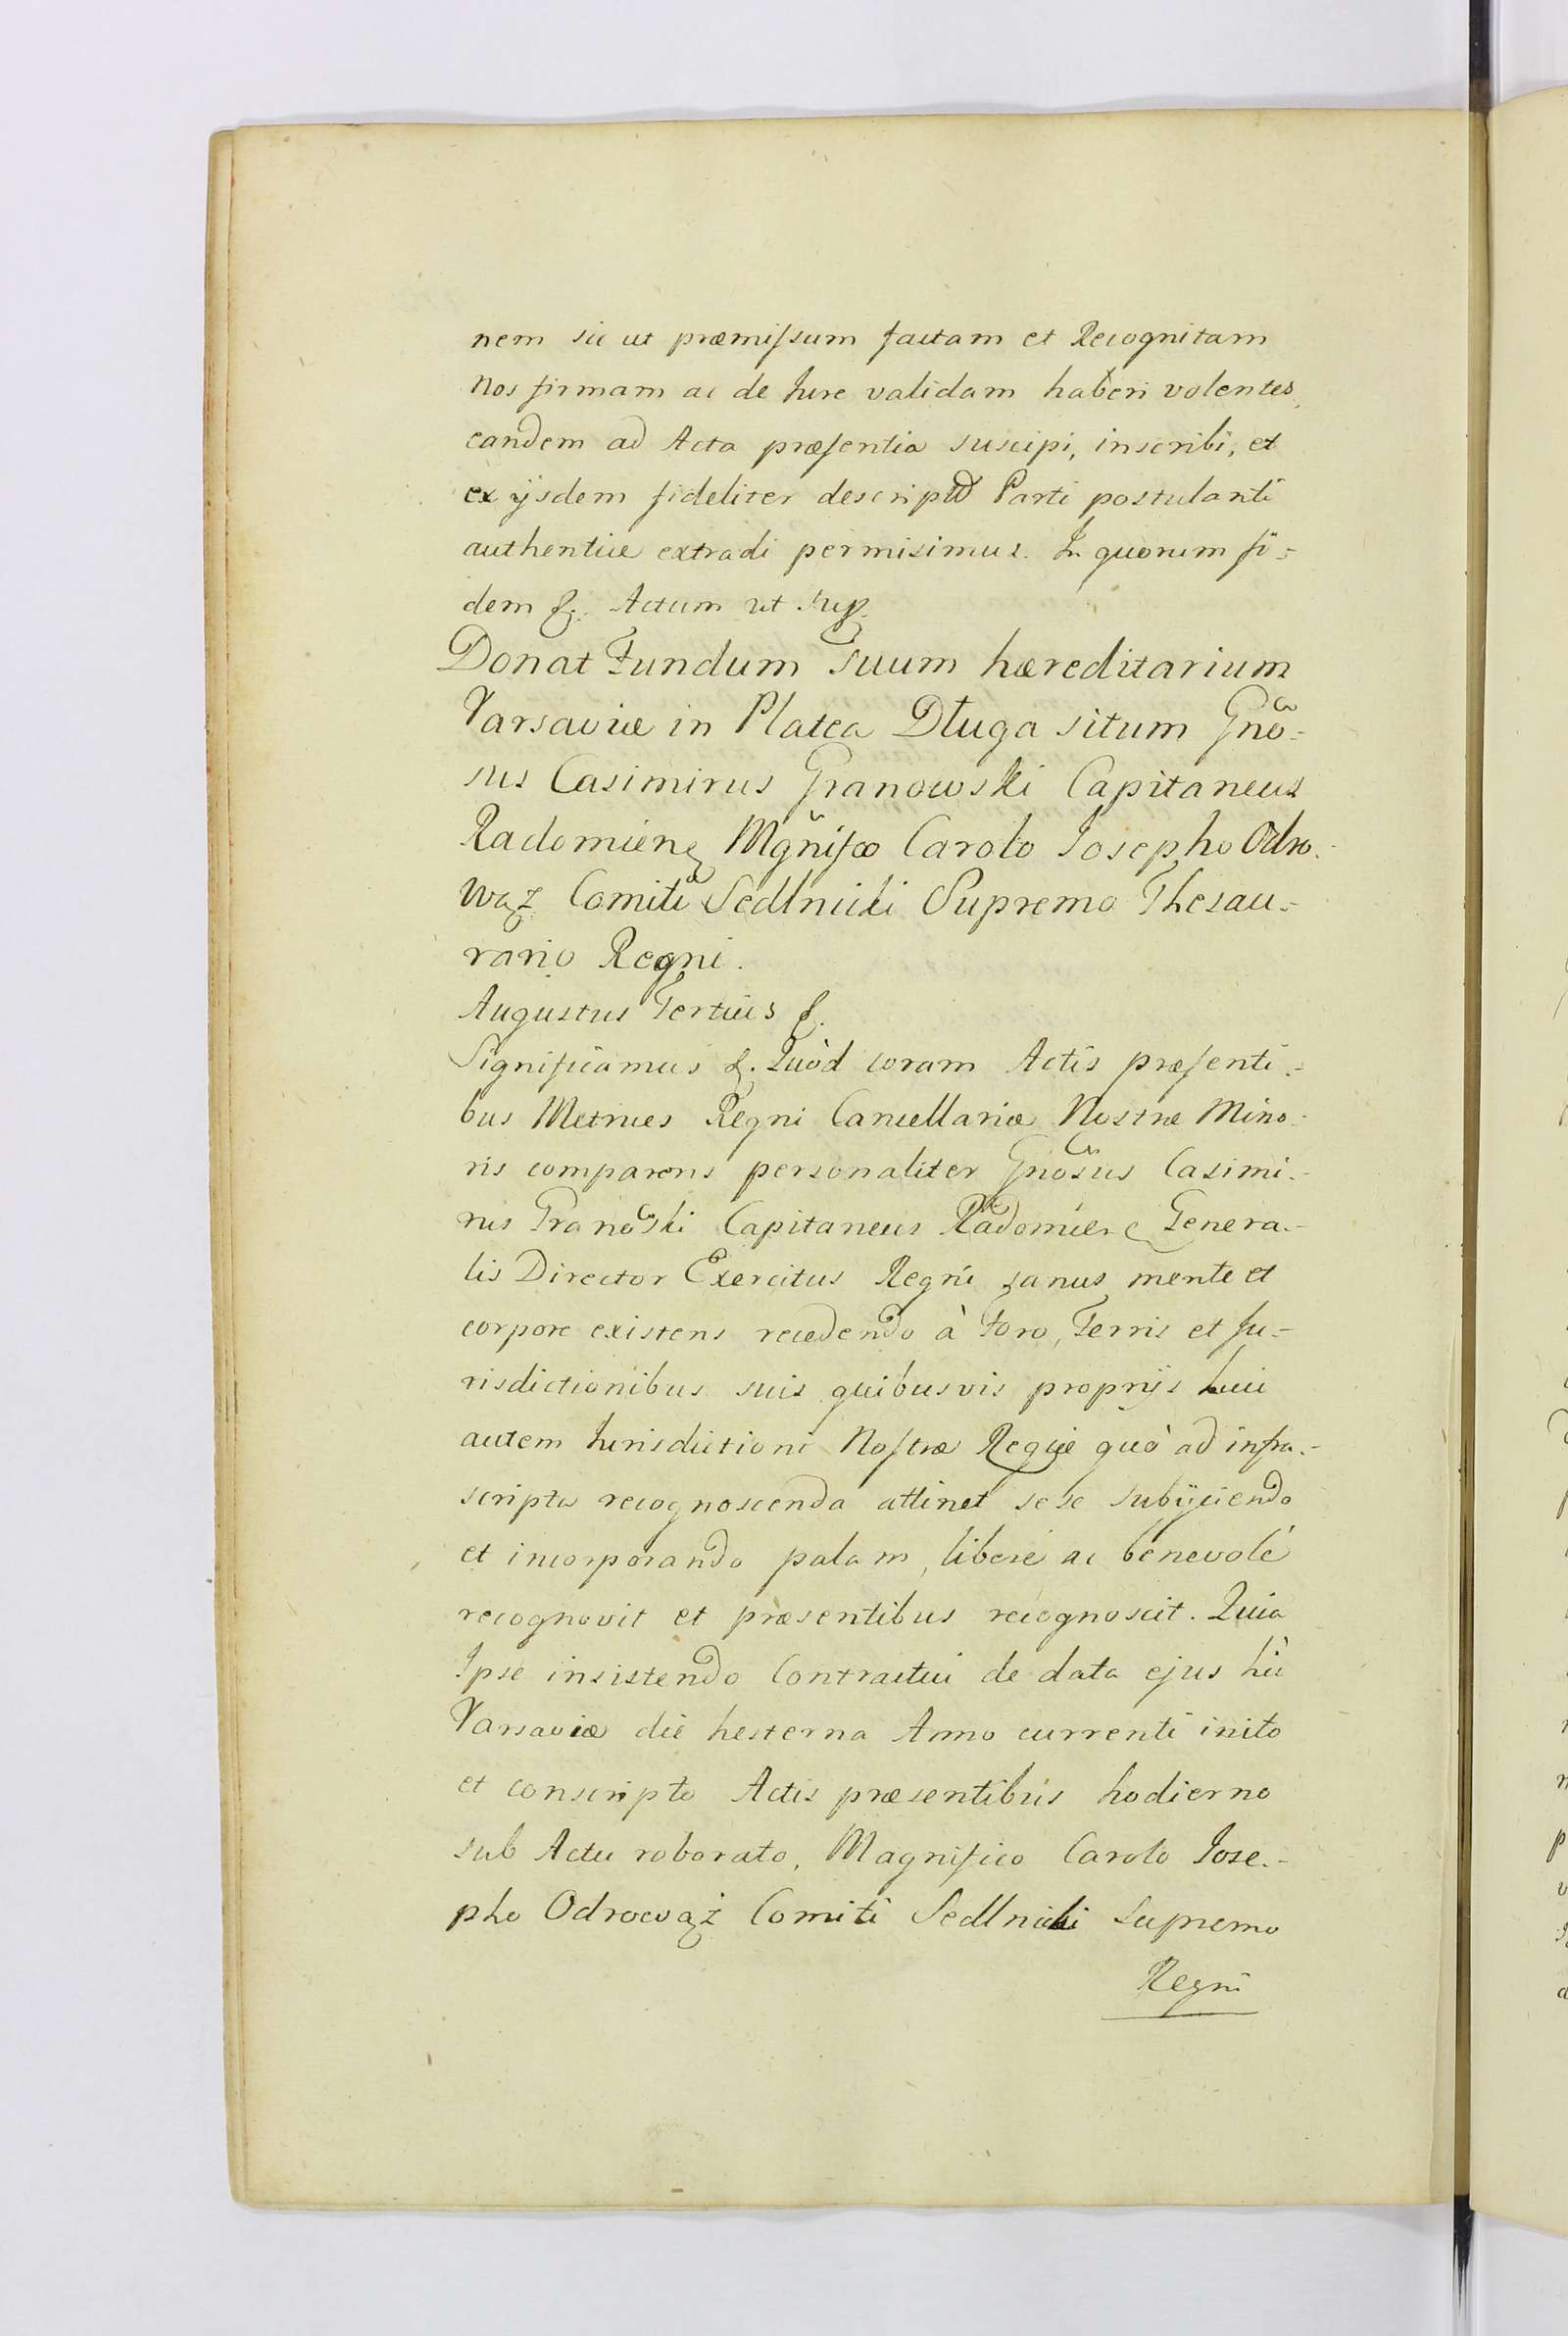 nem sic ut præmissum factam et Recognitam
Nos firmam ac de Jure validam haberi volentes,
eandem ad Acta præsentia suscipi, inscribi, et
ex ijsdem fideliter descriptã Parti postulanti
authentice extradi permisimus. In quorum fi-
dem &. Actum ut sup.
Donat Fundum Suum hæreditarium
Varsaviæ in Platea Długa situm Gnõ-
sus Casimirus Granowski Capitaneus
Radomien Mgñifco Carolo Josepho Odro-
wąz Comiti Sedlnicki Supremo Thesau-
rario Regni.
Augustus Tertius &.
Significamus &. Quòd coram Actis præsenti-
bus Metrices Regni Cancellariæ Nostræ Mino-
ris comparens personaliter Gnosus Casimi-
rus Granoski Capitaneus Radomien Genera-
lis Director Exercitus Regni sanus mente et
corpore existens recedendo à Foro, Terris et Ju-
risdictionibus suis quibusvis proprijs huic
autem Jurisdictioni Nostræ Regiæ quò ad infra-
scripta recognoscenda attinet sese subijciendo
et incorporando palam, liberè ac benevolè
recognovit et præsentibus recognoscit. Quia
Ipse insistendo Contractui de data ejus hìc
Varsaviæ die hesterna Anno currenti inito
et conscripto Actis præsentibus hodierno
sub Actu roborato, Magnifico Carolo Jose-
pho Odrowąż Comiti Sedlnicki Supremo
Regni